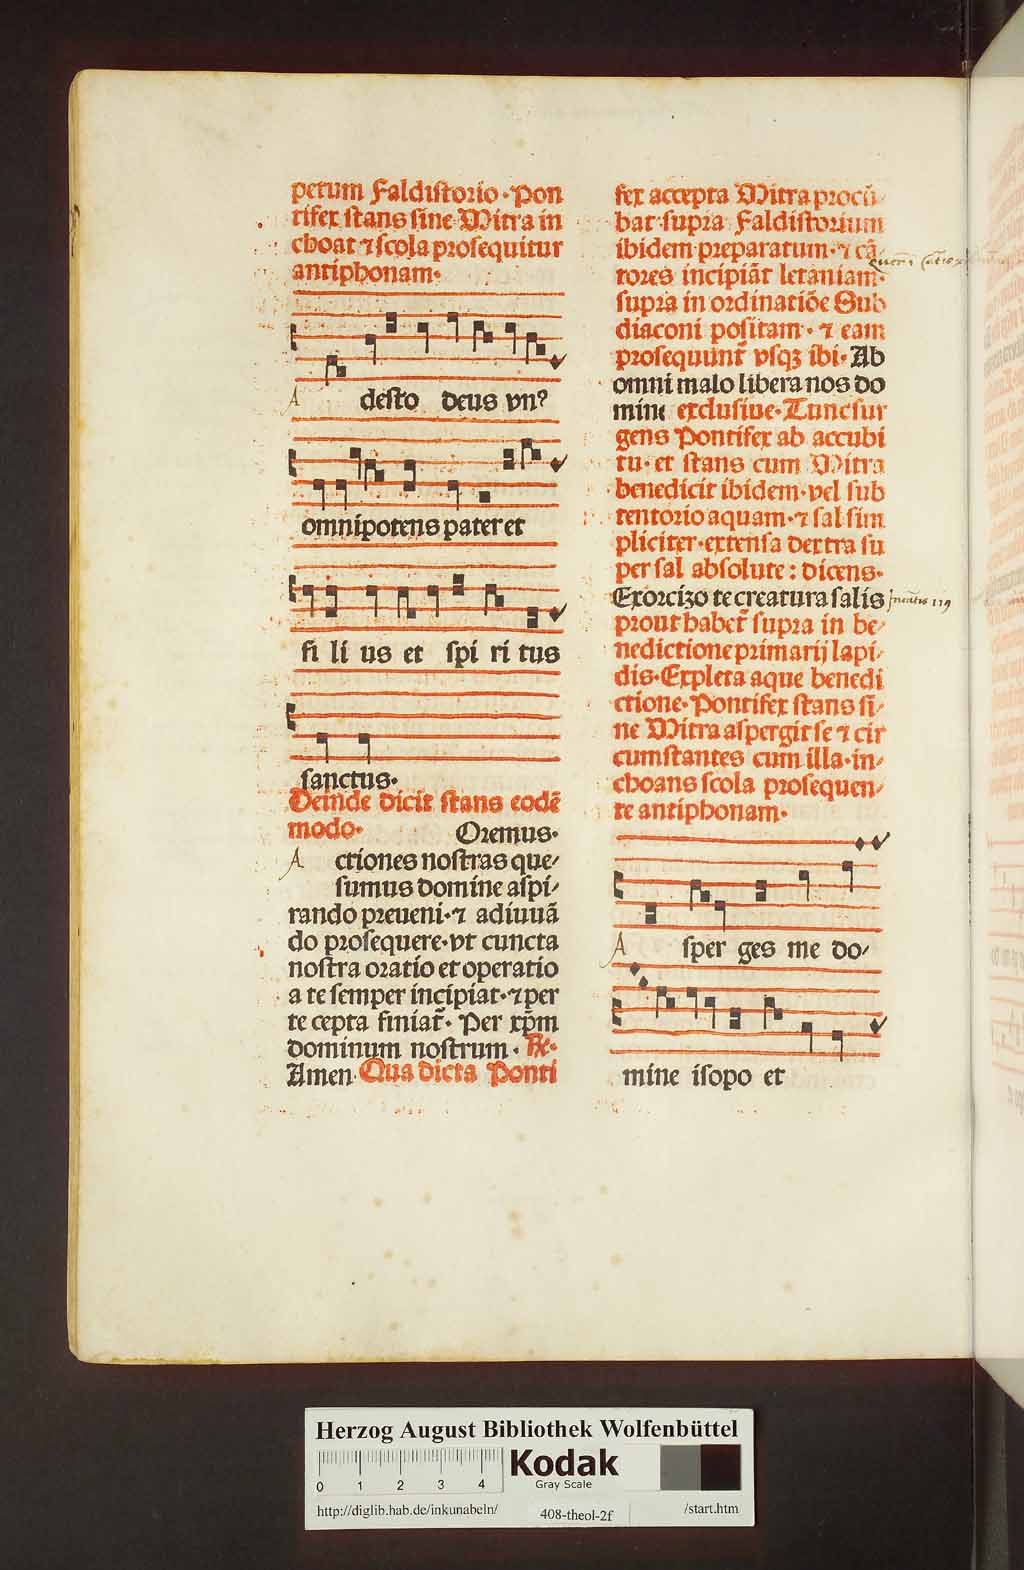 petum Faldistorio · Pon
tifex stans sine Mitra in
choat ⁊ scola prosequitur
antiphonam·
A desto deus vnꝰ
omnipotens pater et
fi li us et spi ri tus
sanctus·
Deinde dicit stans eodē
modo· Oremus·
A ctiones nostras que-
sumus domine aspi-
rando preueni·⁊ adiuuā
do prosequere·vt cuncta
nostra oratio et operatio
a te semper incipiat·⁊ per
te cepta finiat᷑· Per xp̄m
dominum nostrum · ℟·
Amen· Qua dicta Ponti
fex accepta Mitra procū-
bat supra Faldistorium
ibidem preparatum·⁊ cā
tores incipiāt letaniam·
supra in ordinatiōe Sub
diaconi positam·⁊ eam
prosequunt᷑ vsqꝫ ibi· Ab
omni malo libera nos do
mine exclusiue· Tunc sur
gens Pontifex ab accubi
tu· et stans cum Mitra
benedicit ibidem·vel sub
tentorio aquam·⁊ sal sim
pliciter·extensa dextra su
per sal absolute : dicens·
Exorcizo te creatura salis
prout habet᷑ supra in be-
nedictione primarij lapi-
dis· Expleta aque benedi
ctione· Pontifex stans si-
ne Mitra aspergit se ⁊ cir
cumstantes cum illa·in-
choans scola prosequen-
te antiphonam·
A sper ges me do-
mine isopo et
Herzog August Bibliothek Wolfenbüttel
0 1 2 3 4
Kodak
Gray Scale
http://diglib.hab.de/inkunabeln/ 408-theol-2f /start.htm